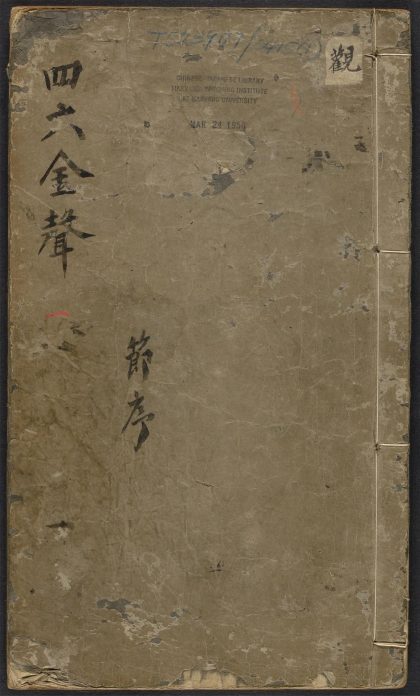 觀
四六金聲
一
節序
CHINESE-JAPANESE LIBRARY
HARVARD-YENCHING INSTITUTE
AT HARVARD UNIVERSITY
MAR 24 1950